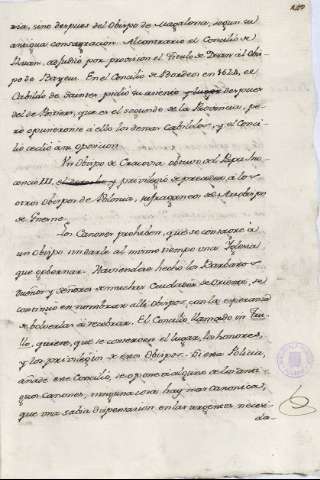 ria, sino despues del Obispo de Magalona, segun su
antigua consagracion. Al contrario el Concilio de
Ruan, adjudicó por provision el titulo de Dean al Obis-
po de Bayeux. En el Concilio de Bordeos en 1624, el
Cabildo de Saintes pidió su asiento y lugar despues
del de Poitiers, que es el segundo de la Provincia, pe-
ro opusieronse á ello los demas Cabildos, y el Conci-
lio cedió á su oposicion.
Un Obispo de Cracovia obtuvo del Papa Ino-
cencio III, el derecho y privilegio de preceder á los
otros Obispos de Polonia, sufraganeos del Arzobispo
de Gnesne.
Los Canones prohiben, que se consagre á
un Obispo sin darle al mismo tiempo una Iglesia
que gobernar. Haviendose hecho los Barbaros
dueños y señores de muchas Ciudades de Oriente, se
continuó en nombrar alli Obispos, con la esperanza
de bolverlas á recobrar. El Concilio llamado in Tru-
llo, quiere, que se conserven el lugar, los honores,
y los privilegios de estos Obispos. Si esta Policia,
añade este Concilio, se opone á alguno de los anti-
guos canones, ninguna cosa hay mas canonica,
que una sabia dispensacion en las urgentes necesi-
da-